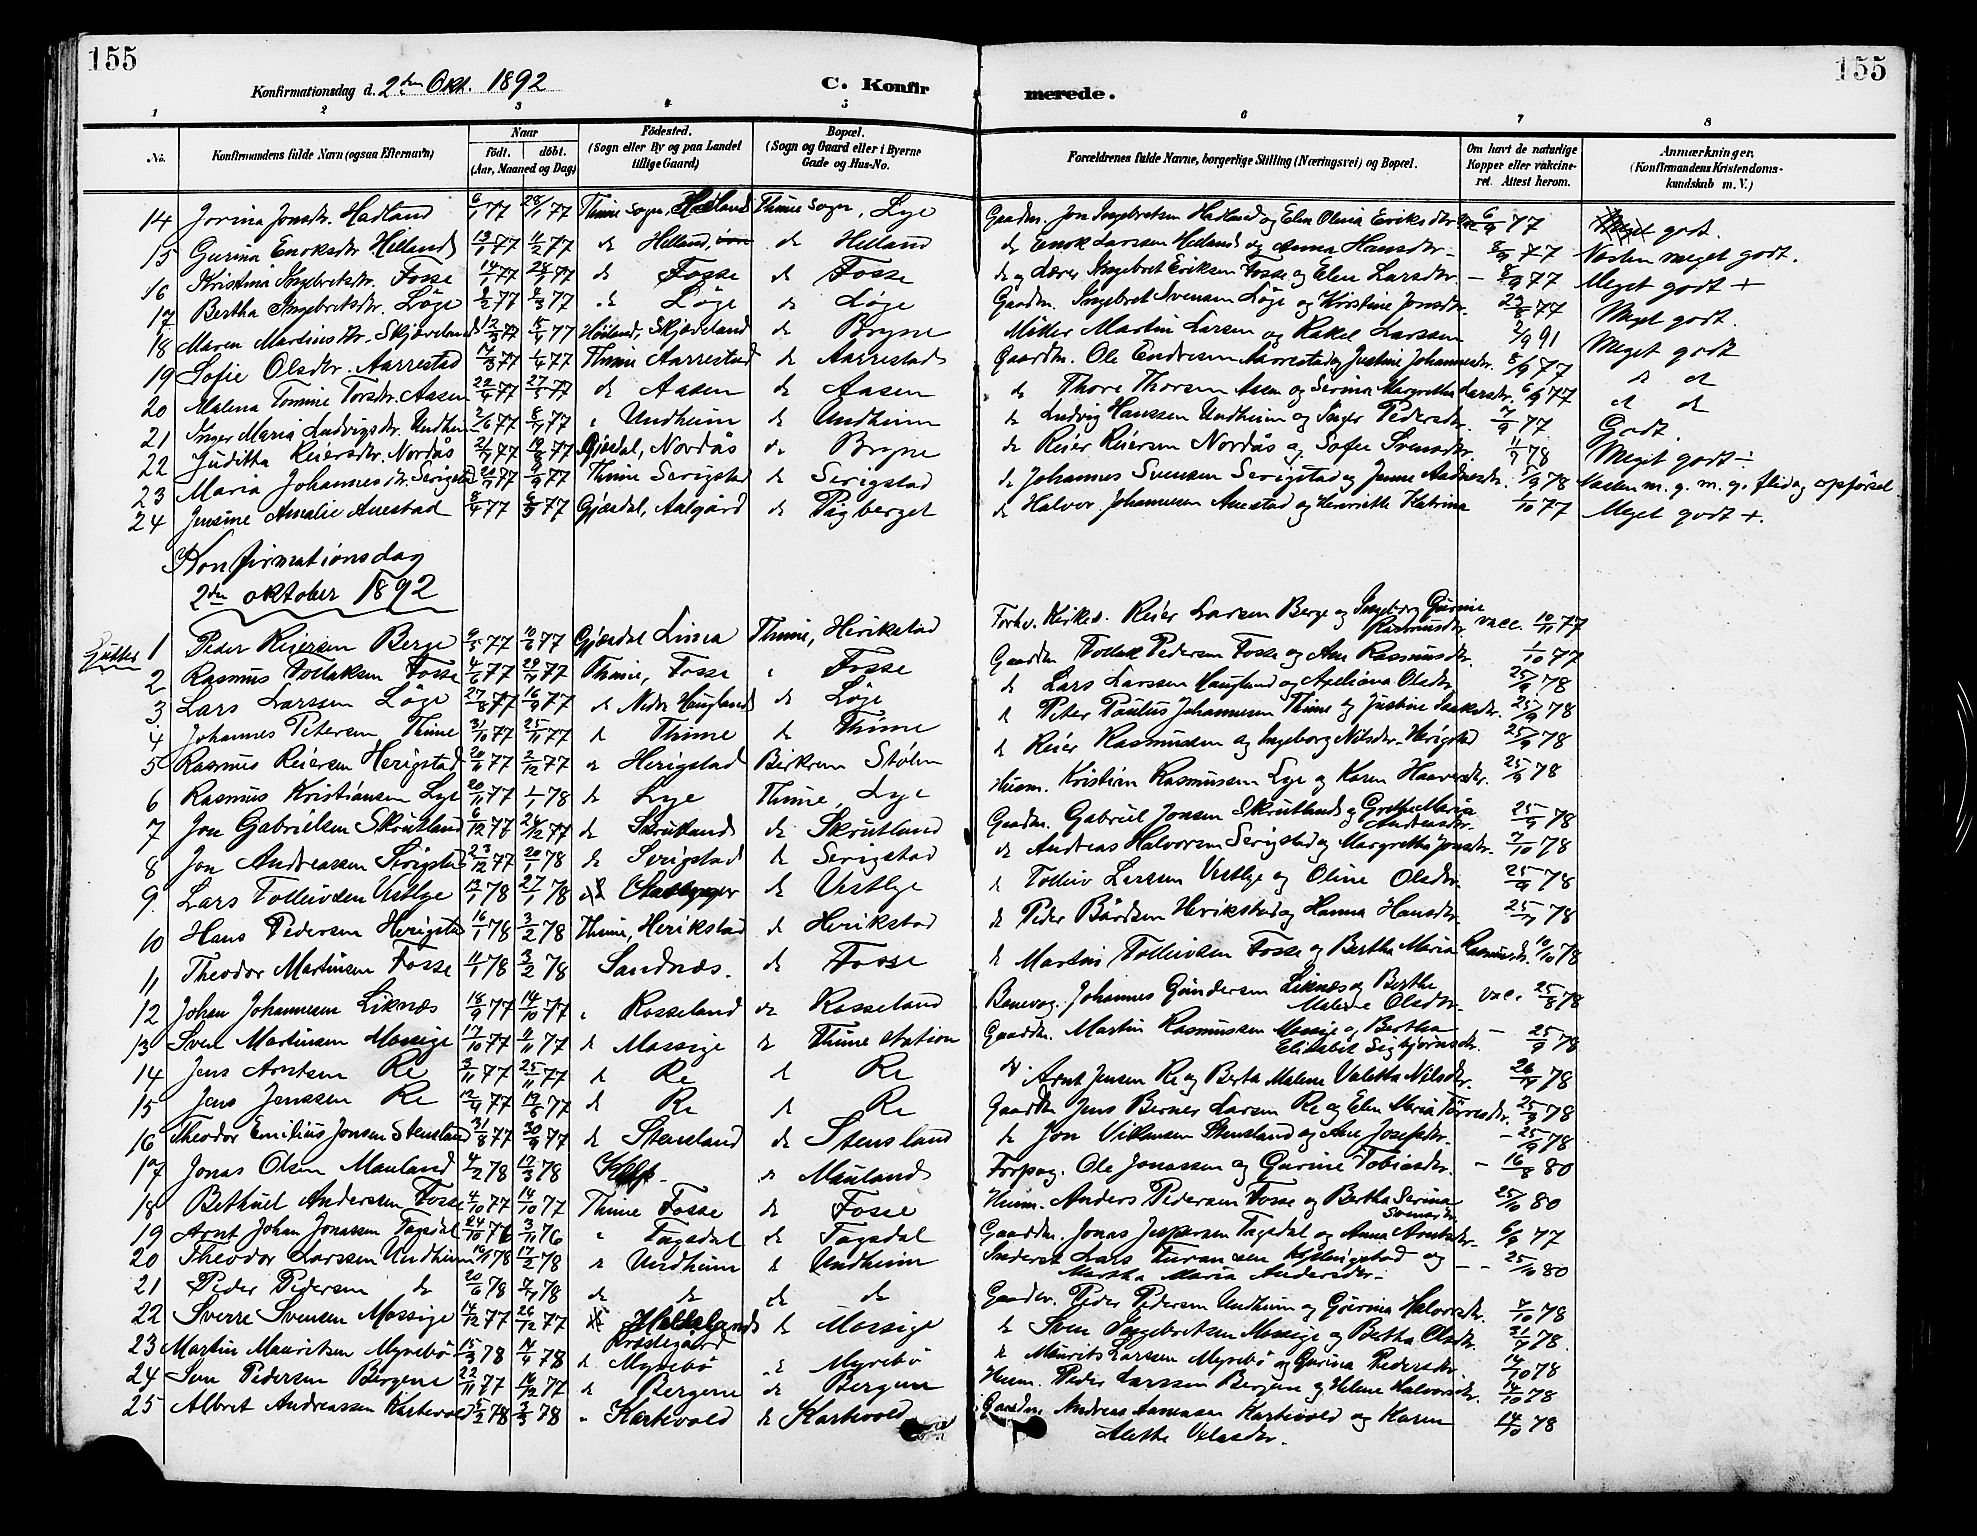 155
155
Konfirmationsdag d. 2den Okt. 1892
C. Konfir
merede.
1 2 3 4 5 6 7 8
No.
Konfirmandens fulde Navn (ogsaa Efternavn)
Naar
födt. döbt.
(Aar, Maaned og Dag)
Födested.
(Sogn eller By og paa Landet
tillige Gaard)
Bopæl.
(Sogn og Gaard eller i Byerne
Gade og Hus-No.
Forældrenes fulde Navne, borgerlige Stilling (Næringsvei) og Bopæl.
Om havt de naturlige
Kopper eller vakcine-
ret. Attest herom.
Anmærkninger.
(Konfirmandens Kristendoms-
kundskab m. V.)
14 Jorina Jonsdtr. Hadland 6/1 77 28/1 77 Thime sogn, Hadland Thime sogn, Lye Gaardm. Jon Ingebretsen Hadland og Elen Olena Eriksdtr. 6/9 77 godt.
15 Gurina Enoksdtr. Helland 13/1 77 11/2 77 do Helland do Helland do Enok Larssen Helland og Anna Hansdtr. - 8/9 77 Næsten meget godt.
16 Kristina Ingebretsdtr. Fosse 14/1 77 28/1 77 do Fosse do Fosse do og Lærer Ingebret Eriksen Fosse og Elen Larsdtr. - 8/9 77 Meget godt +
17 Bertha Ingebretsdtr. Löge 2/2 77 4/3 77 do Löge do Löge Gaardm. Ingebret Svensen Löge og Kristine Jonsdtr. 29/8 77 Meget godt.
18 Maren Martinsdtr. Skjæveland 12/2 77 15/4 77 Höiland, Skjæveland do Bryne Möller Martin Larsen og Rakel Larssen 2/9 91 Meget godt
19 Sofie Olsdtr. Aarrestad 7/3 77 1/4 77 Thime Aarrestad do Aarrestad Gaardm. Ole Endresen Aarrestad og Justine Johannesdtr. 8/9 77 do do
20 Malena Tomine Torsdtr. Aasen 22/4 77 27/5 77 do Aasen do Aasen do Thore Thorsen Aasen og Serina Margretha Larsdtr. 6/9 77 do do
21 Inger Maria Ludvigsdtr. Undheim 2/6 77 8/7 77 " Undheim do Undheim do Ludvig Hanssen Undheim og Inger Pedersdtr. 7/9 77 Godt
22 Juditha Reiersdtr. Nordås 2/7 77 19/8 77 Gjæsdal, Nordås do Bryne do Reier Reiersen Nordås og Sofie Svensdtr. 11/9 78 Meget godt ÷
23 Maria Johannesdtr. Serigstad 20/7 77 9/9 77 Thime Serigstad do Serigstad do Johannes Svensen Serigstad og Jenne Aadnesdtr. 5/9 78 Næsten m. g. m. g. flid og opförsel
24 Jensine Amalie Auestad 8/4 77 6/5 77 Gjæsdal, Aalgård do Tegberget do Halvor Johannesen Auestad og Henriette Katrina 1/10 77 Meget godt +.
Konfirmationsdag
2den oktober 1892
Gutter
1 Peder Reiersen Berge 9/5 77 10/6 77 Gjæsdal Limea Thime, Herikstad Forhv. Kirkes. Reier Larsen Berge og Ingeborg Gurine Rasmusdtr. vacc. 10/11 77
2 Rasmus Tollaksen Fosse 4/6 77 29/7 77 Thime, Fosse " Fosse Gaardm Tollak Pedersen Fosse og Ane Rasmusdtr. 1/10 77
3 Lars Larssen Löge 27/8 77 16/9 77 do Nedr Haugland do Löge do Lars Larssen Haugland og Apeliona Olsdtr. 25/9 78
4 Johannes Petersen Thime 31/10 77 25/11 77 do Thime do Thime do Peter Paulus Johannesen Thime og Justine Isaksdtr. 25/9 78
5 Rasmus Reiersen Herigstad 20/11 77 2/12 77 do Herigstad Birkrem Stölen do Reier Rasmussen og Ingeborg Nilsdtr. Herigstad 25/9 78
6 Rasmus Kristiansen Lye 20/11 77 1/1 78 do Lye Thime, Lye Husm. Kristian Rasmussen Lye og Karen Haaversdtr. 25/9 78
7 Jon Gabrielsen Skrutland 6/12 77 26/12 77 do Skrutland do Skrutland Gaardm. Gabriel Jonsen Skrutland og Grethe Maria Andreasdtr. 25/9 78
8 Jon Andreassen Serigstad 23/12 77 20/1 78 do Serigstad do Serigstad do Andreas Halvorsen Serigstad og Margretha Jonsdtr. 7/10 78
9 Lars Tolleivsen Vestlye 12/1 78 27/1 78 do Vestlye do Tolleiv Larsen Vestlye og Oline Olsdtr. 25/9 78
10 Hans Pedersen Herigstad 16/1 78 3/2 78 Thime, Herikstad do Herikstad do Peder Bårdsen Herikstad og Hanna Hansdtr. 25/9 78
11 Theodor Martinsen Fosse 11/1 78 3/2 78 Sandnæs. do Fosse do Martin Tolleivsen Fosse og Bertha Maria Rasmusdr. 10/10 78
12 Johan Johannesen Liknæs 18/9 77 14/10 77 " Rosseland do Rosseland Banevog. Johannes Gundersen Liknæs og Berthe Malene Olsdtr. vac. 25/8 78
13 Sven Martinsen Mossige 17/10 77 11/11 77 do Mossige do Thime station Gaardm. Martin Rasmussen Mossige og Bertha Elisabet Sigbjörnsdr. - 25/9 78
14 Jens Arntsen Re 3/11 77 25/11 77 do Re do Re do. Arnt Jensen Re og Berta Malene Valetta Nilsdtr. 26/9 78
15 Jens Jenssen Re 12/4 77 19/5 77 do Re do Re Gaardm Jens Berner Larsen Re og Elen Maria Törresdtr. 25/9 78
16 Theodor Emilius Jonsen Stensland 31/8 77 30/9 77 do Stensland do Stensland do Jon Villumsen Stensland og Ane Josefsdtr. - 25/9 78
17 Jonas Olsen Mauland 4/2 78 17/3 78 Klep do Mauland Forpag. Ole Jonassen og Gurine Tobiasdtr. - 16/8 80
18 Bethuel Andersen Fosse 4/10 77 14/10 77 Thime Fosse do Fosse Husm. Anders Pedersen Fosse og Bertha Serina Svensdtr. 25/10 80
19 Arnt Johan Jonassen Tagsdal 24/10 76 3/11 76 " Tagsdal do Tagsdal Gaardm. Jonas Jespersen Tagsdal og Anna Arntsdtr. 6/9 77
20 Theodor Larssen Undheim 16/1 78 17/2 78 do Undheim do Undheim Lars og Martha Maria Andersdtr. - - 25/10 80
21 Peder Pedersen do 20/6 78 7/7 78 do do do do Gaardbr. Peder Pedersen Undheim og Gurina Halvorsdtr. 7/10 78
22 Sverre Svensen Mossige 14/12 77 26/12 77 Præstegaard do Mossige do Sven Ingebretsen Mossige og Bertha Olsdtr. 21/9 78.
23 Martin Mauritsen Myrebö 15/3 78 14/4 78 do Myrebö do Myrebö do Maurits Larssen Myrebö og Gurina Pedersdtr. 14/10 78
24 Sven Pedersen Bergene 22/11 77 16/12 77 do Bergene do Bergene Husm. Peder Larssen Bergene og Helene Halvorsdtr. 14/10 78
25 Albret Andreassen Kartevold 5/2 78 3/3 78 " Kartevold do Kartevold Gaardm. Andreas Aanensen Kartevold og Karen Alethe Velasdtr. 14/10 78